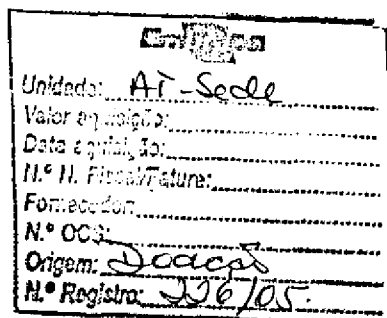 Embrapa
Unidade: AI-Sede
Valor aquisição:
Data aquisição:
N.º N. Fiscal/Fatura:
Fornecedor:
N.º OCS:
Origem: Doação
N.º Registro: 226/05.